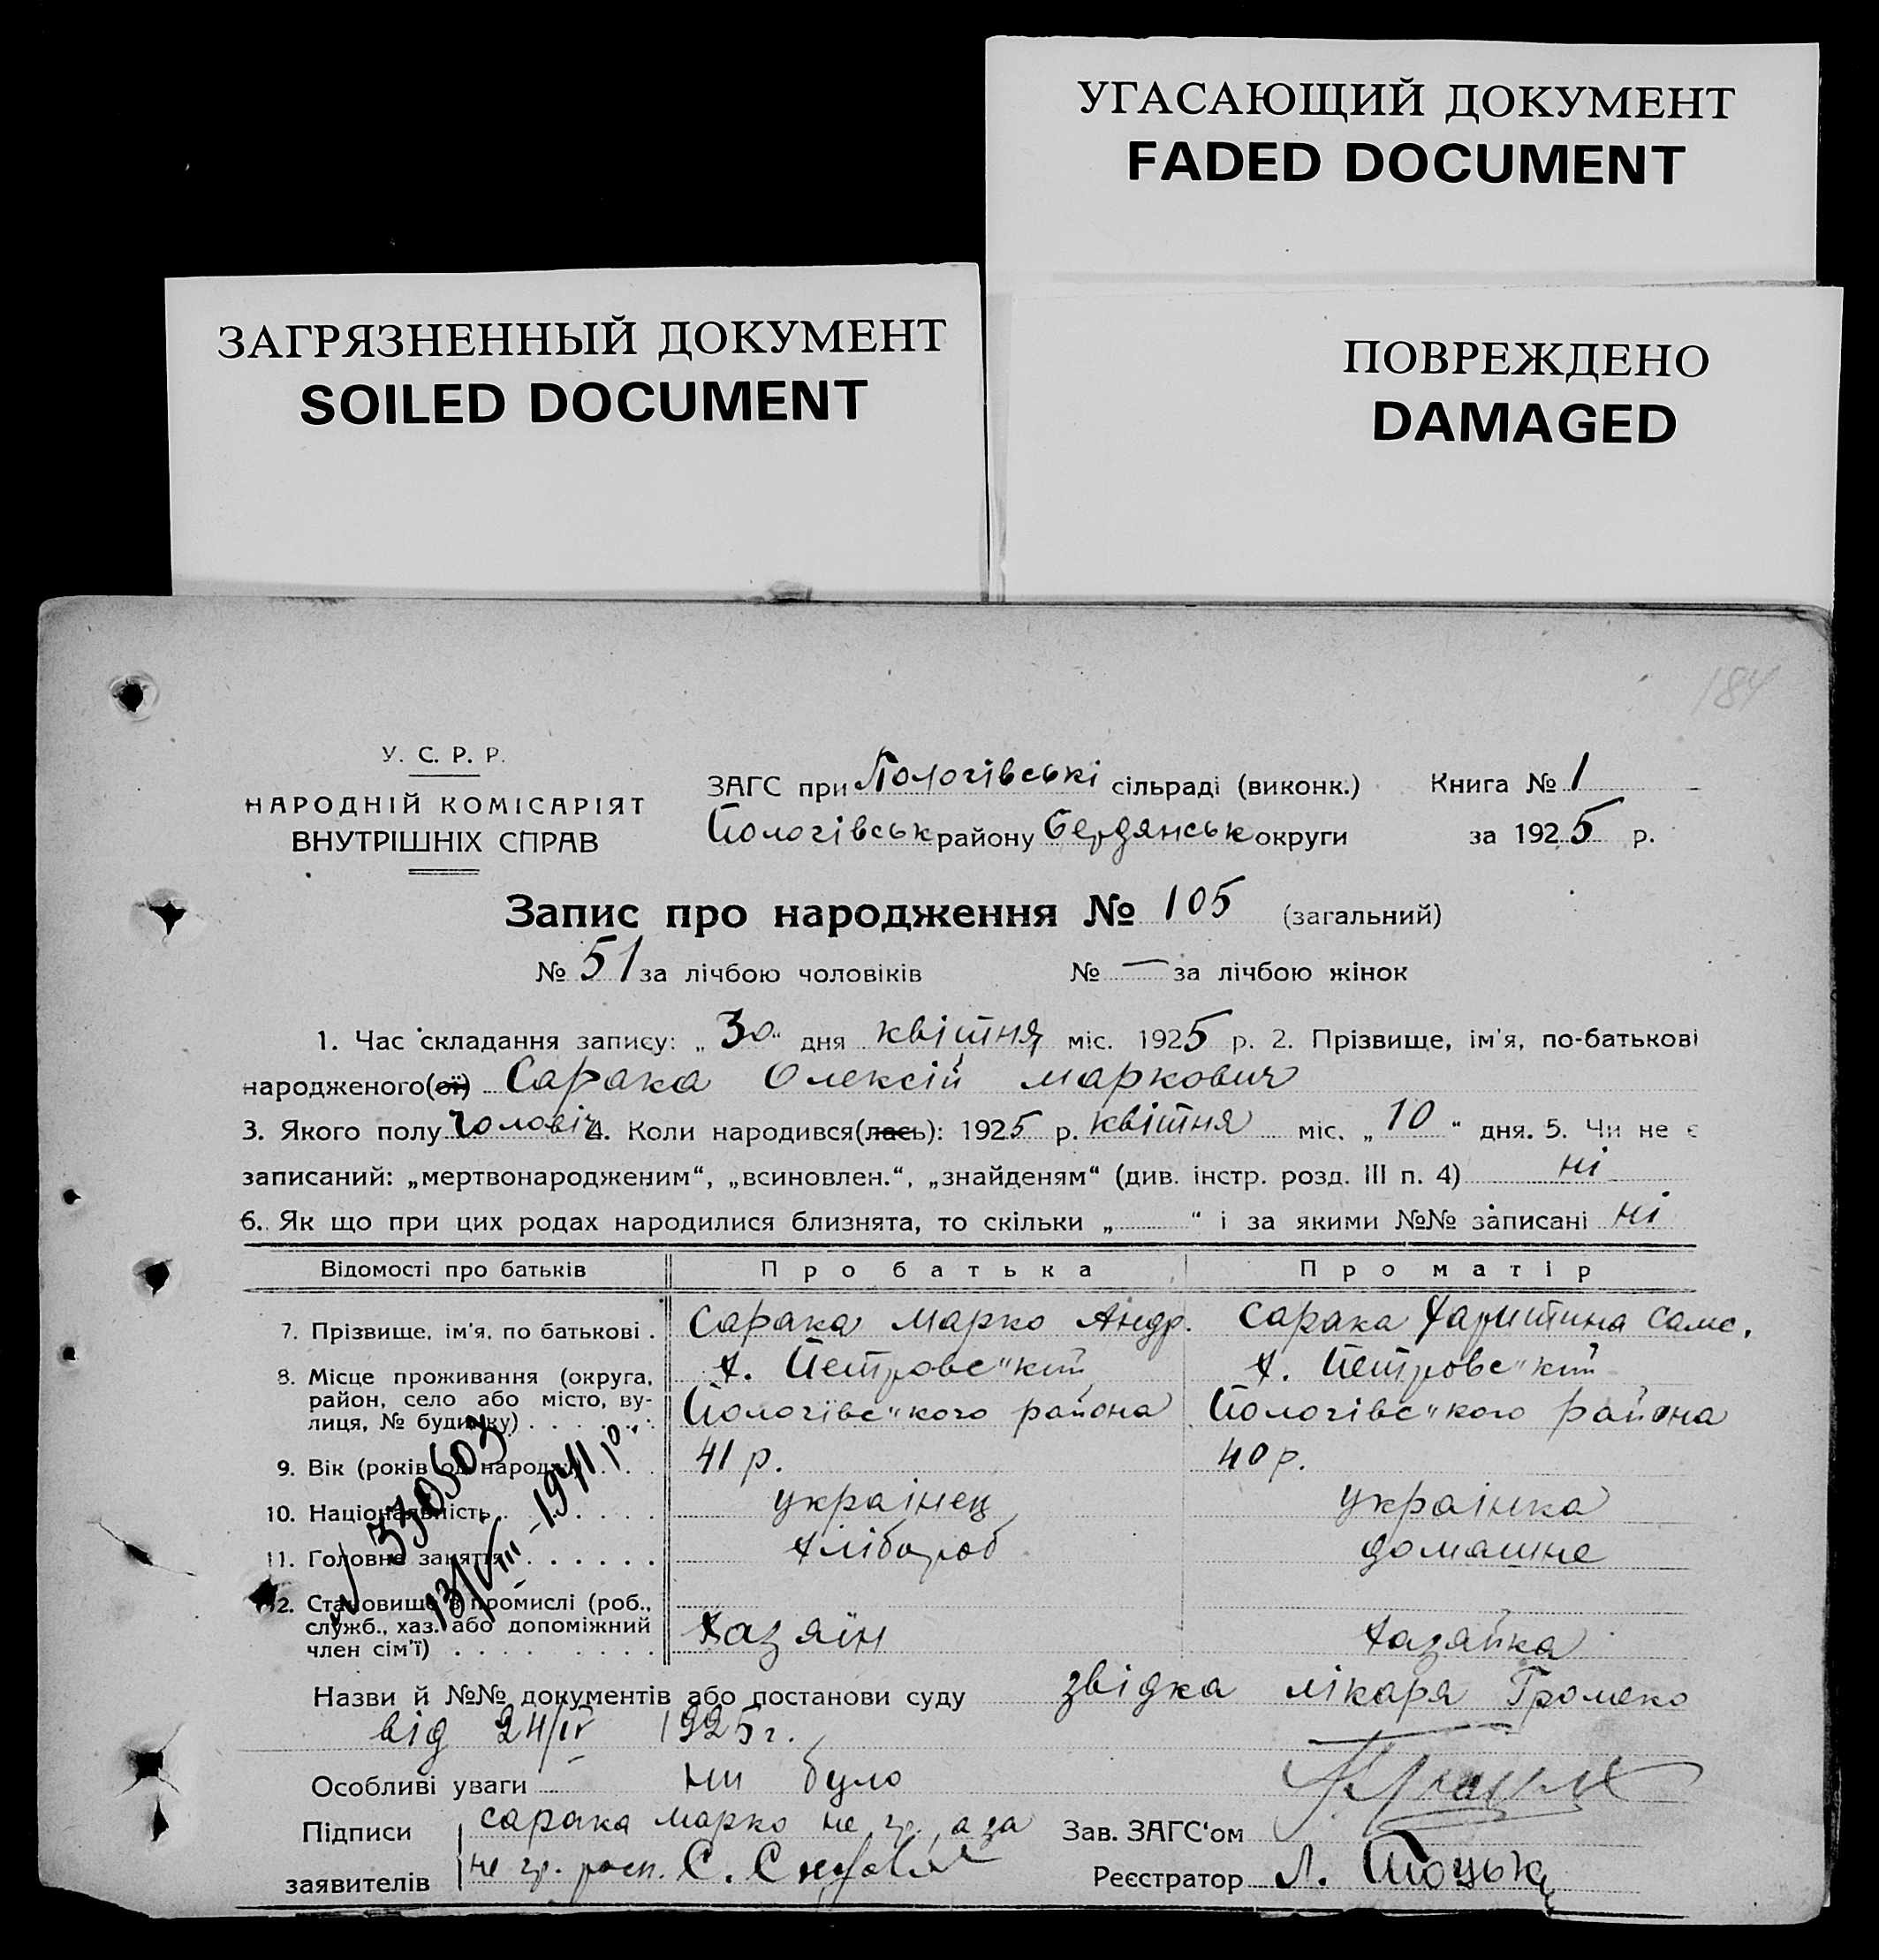 УГАСАЮЩИЙ ДОКУМЕНТ
FADED DOCUMENT
ЗАГРЯЗНЕННЫЙ ДОКУМЕНТ
SOILED DOCUMENT
ПОВРЕЖДЕНО
DAMAGED
184
У. С. Р. Р.
НАРОДНІЙ КОМІСАРІЯТ
ВНУТРІШНІХ СПРАВ
ЗАГС при Пологівські сільраді (виконк.) Книга № 1
Пологівськ району Бердянськ округи за 1925 р.
Запис про народження № 105 (загальний)
№ 51 за лічбою чоловіків № — за лічбою жінок
1. Час складання запису: „30“ дня квітня міс. 1925 р. 2. Прізвище, ім'я, по-батькові
народженого(ої) Сарака Олексій Маркович
3. Якого полу чоловіч 4. Коли народився(лась): 1925 р. квітня міс. „10“ дня. 5. Чи не є
записаний: „мертвонародженим“, „всиновлен.“, „знайденям“ (див. інстр. розд. III п. 4) ні
6. Як що при цих родах народилися близнята, то скільки „ “ і за якими №№ записані ні
Відомості про батьків Про батька Про матір
7. Прізвище, ім'я, по батькові . Сарака Марко Андр. Сарака Харитина Самс.
8. Місце проживання (округа, х. Петровс"кий х. Петровс"кий
район, село або місто, ву- Пологівс"кого района Пологівс"кого района
лиця, № будинку)
9. Вік (років од народж.) 41 р. 40 р.
10. Національність українец українка
11. Головне заняття хлібороб домашне
12. Становище в промислі (роб.,
служб., хаз. або допоміжний хазяїн хазяйка
член сім'ї)
13/VIII-1941 р.
Назви й №№ документів або постанови суду звідка лікаря Громеко
від 24/IV 1925 г.
Особливі уваги ни було
Підписи Сарака Марко не гр., а за Зав. ЗАГС'ом
заявителів не гр. росп. С. Реєстратор Л.